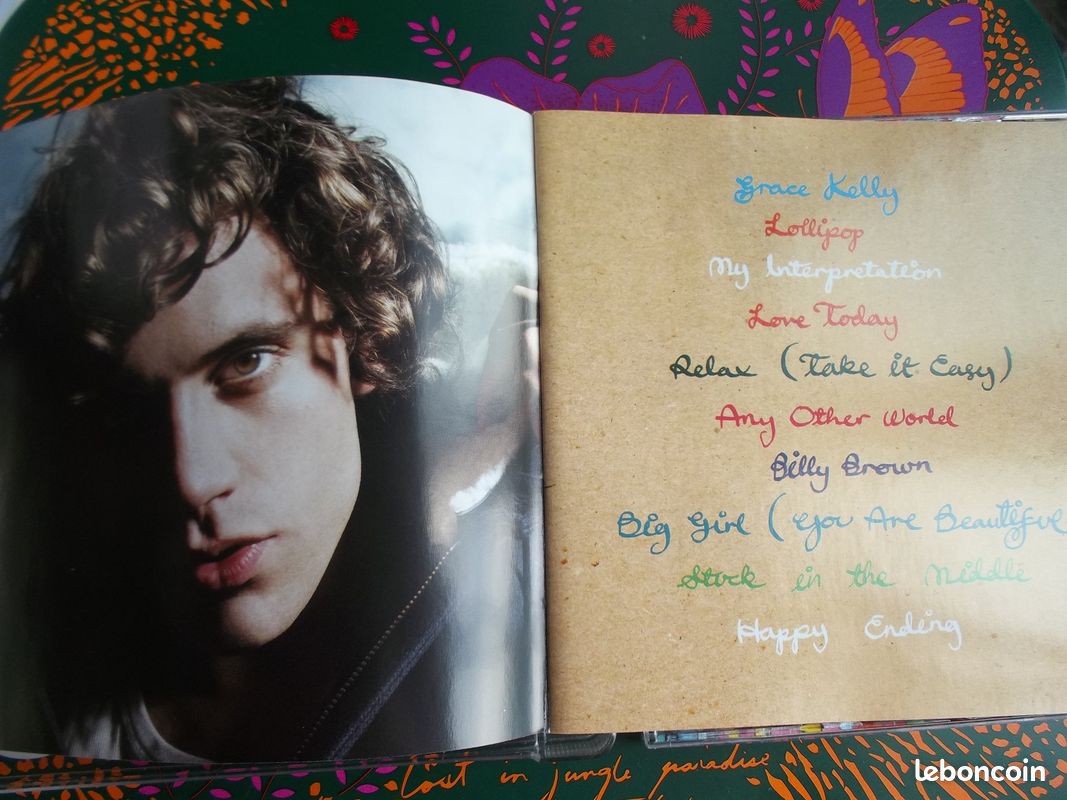 Grace Kelly
Lollipop
My Interpretation
Love Today
Relax (Take it Easy)
Any Other World
Billy Brown
Big Girl (You Are Beautiful
Stuck in the Middle
Happy Ending
Lost in jungle paradise
leboncoin